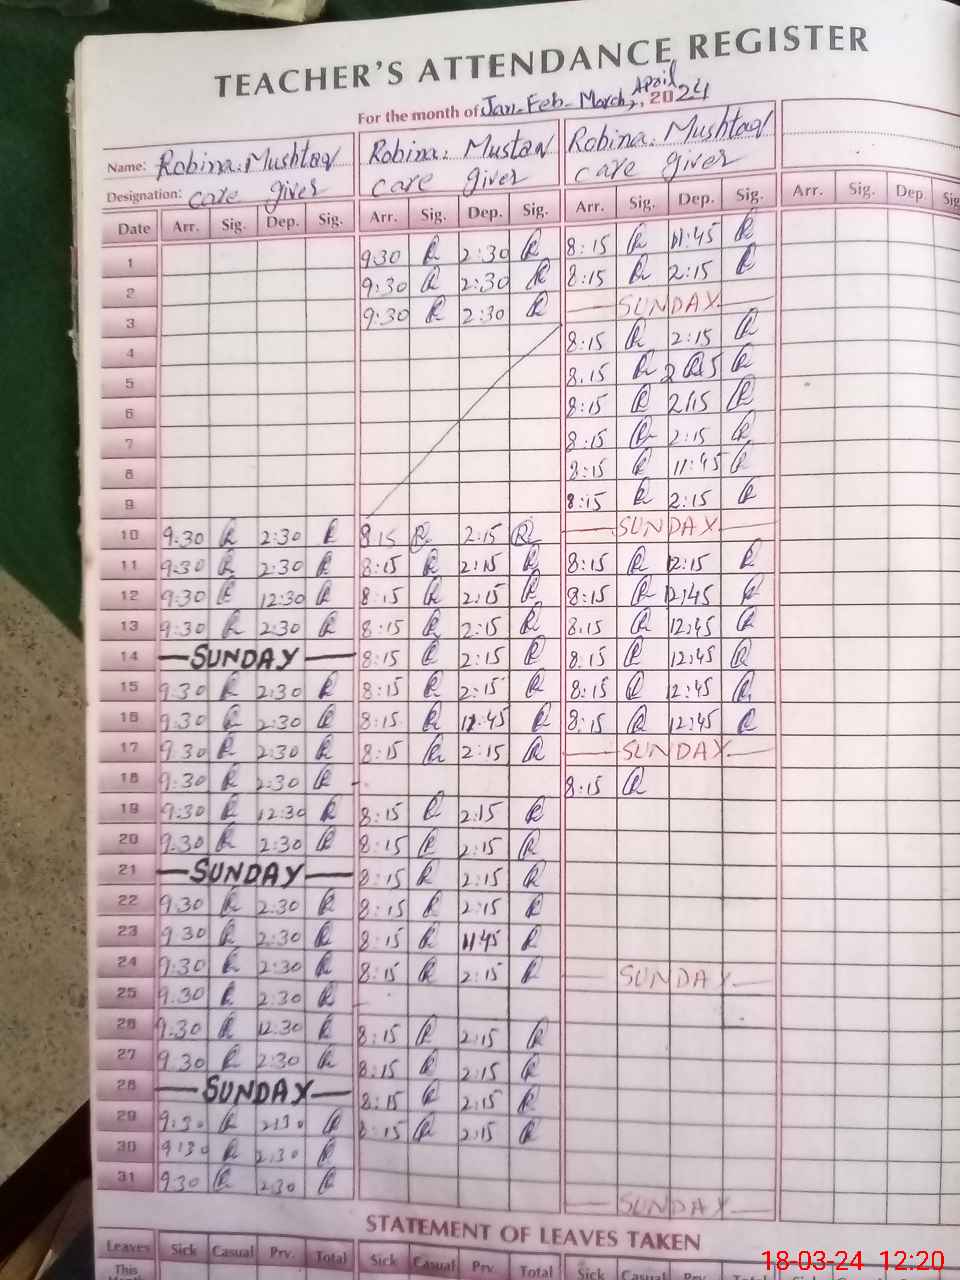 TEACHER'S ATTENDANCE REGISTER
For the month of Jan-Feb-March, April, 2024
Name: Robina.Mushtaq Robina. Mustaq Robina. Mushtaq
Designation: care giver care giver care giver
Date Arr. Sig. Dep. Sig. Arr. Sig. Dep. Sig. Arr. Sig. Dep. Sig. Arr. Sig. Dep. Sig
1 9:30 R 2:30 R 8:15 R 11:45 R
2 9:30 R 2:30 R 8:15 R 2:15 R
3 9:30 R 2:30 R SUNDAY
4 8:15 R 2:15 R
5 8.15 R R
6 8:15 R 2:15 R
7 8:15 R 2:15 R
8 8:15 R 11:45 R
9 8:15 R 2:15 R
10 9:30 R 2:30 R 8:15 R 2:15 R SUNDAY
11 9:30 R 2:30 R 8:15 R 2:15 R 8:15 R 12:15 R
12 9:30 R 12:30 R 8:15 R 2:15 R 8:15 R 12:45 R
13 9:30 R 2:30 R 8:15 R 2:15 R 8.15 R 12:45 R
14 SUNDAY 8:15 R 2:15 R 8:15 R 12:45 R
15 9:30 R 2:30 R 8:15 R 2:15 R 8:15 R 12:45 R
16 9:30 R 2:30 R 8:15 R 11:45 R 8:15 R 12:45 R
17 9:30 R 2:30 R 8:15 R 2:15 R SUNDAY
18 9:30 R 2:30 R 8:15 R
19 9:30 R 12:30 R 8:15 R 2:15 R
20 9:30 R 2:30 R 8:15 R 2:15 R
21 SUNDAY 8:15 R 2:15 R
22 9:30 R 2:30 R 8:15 R 2:15 R
23 9:30 R 2:30 R 8:15 R 11:45 R
24 9:30 R 2:30 R 8:15 R 2:15 R SUNDAY
25 9:30 R 2:30 R
26 9:30 R 12:30 R 8:15 R 2:15 R
27 9:30 R 2:30 R 8:15 R 2:15 R
28 SUNDAY 8:15 R 2:15 R
29 9:30 R 2:30 R 8:15 R 2:15 R
30 9:30 R 2:30 R
31 9:30 R 2:30 R SUNDAY
STATEMENT OF LEAVES TAKEN
Leaves Sick Casual Prv. Total Sick Casual Prv. Total Sick Casual Prv. Total
This
18-03-24 12:20